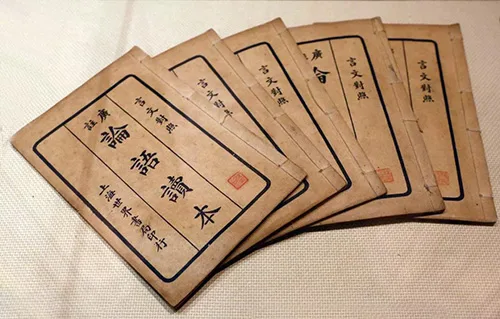 言文對照
廣註
論語讀本
上海世界書局印行
言文對
言文對照
言文對照
言文對照